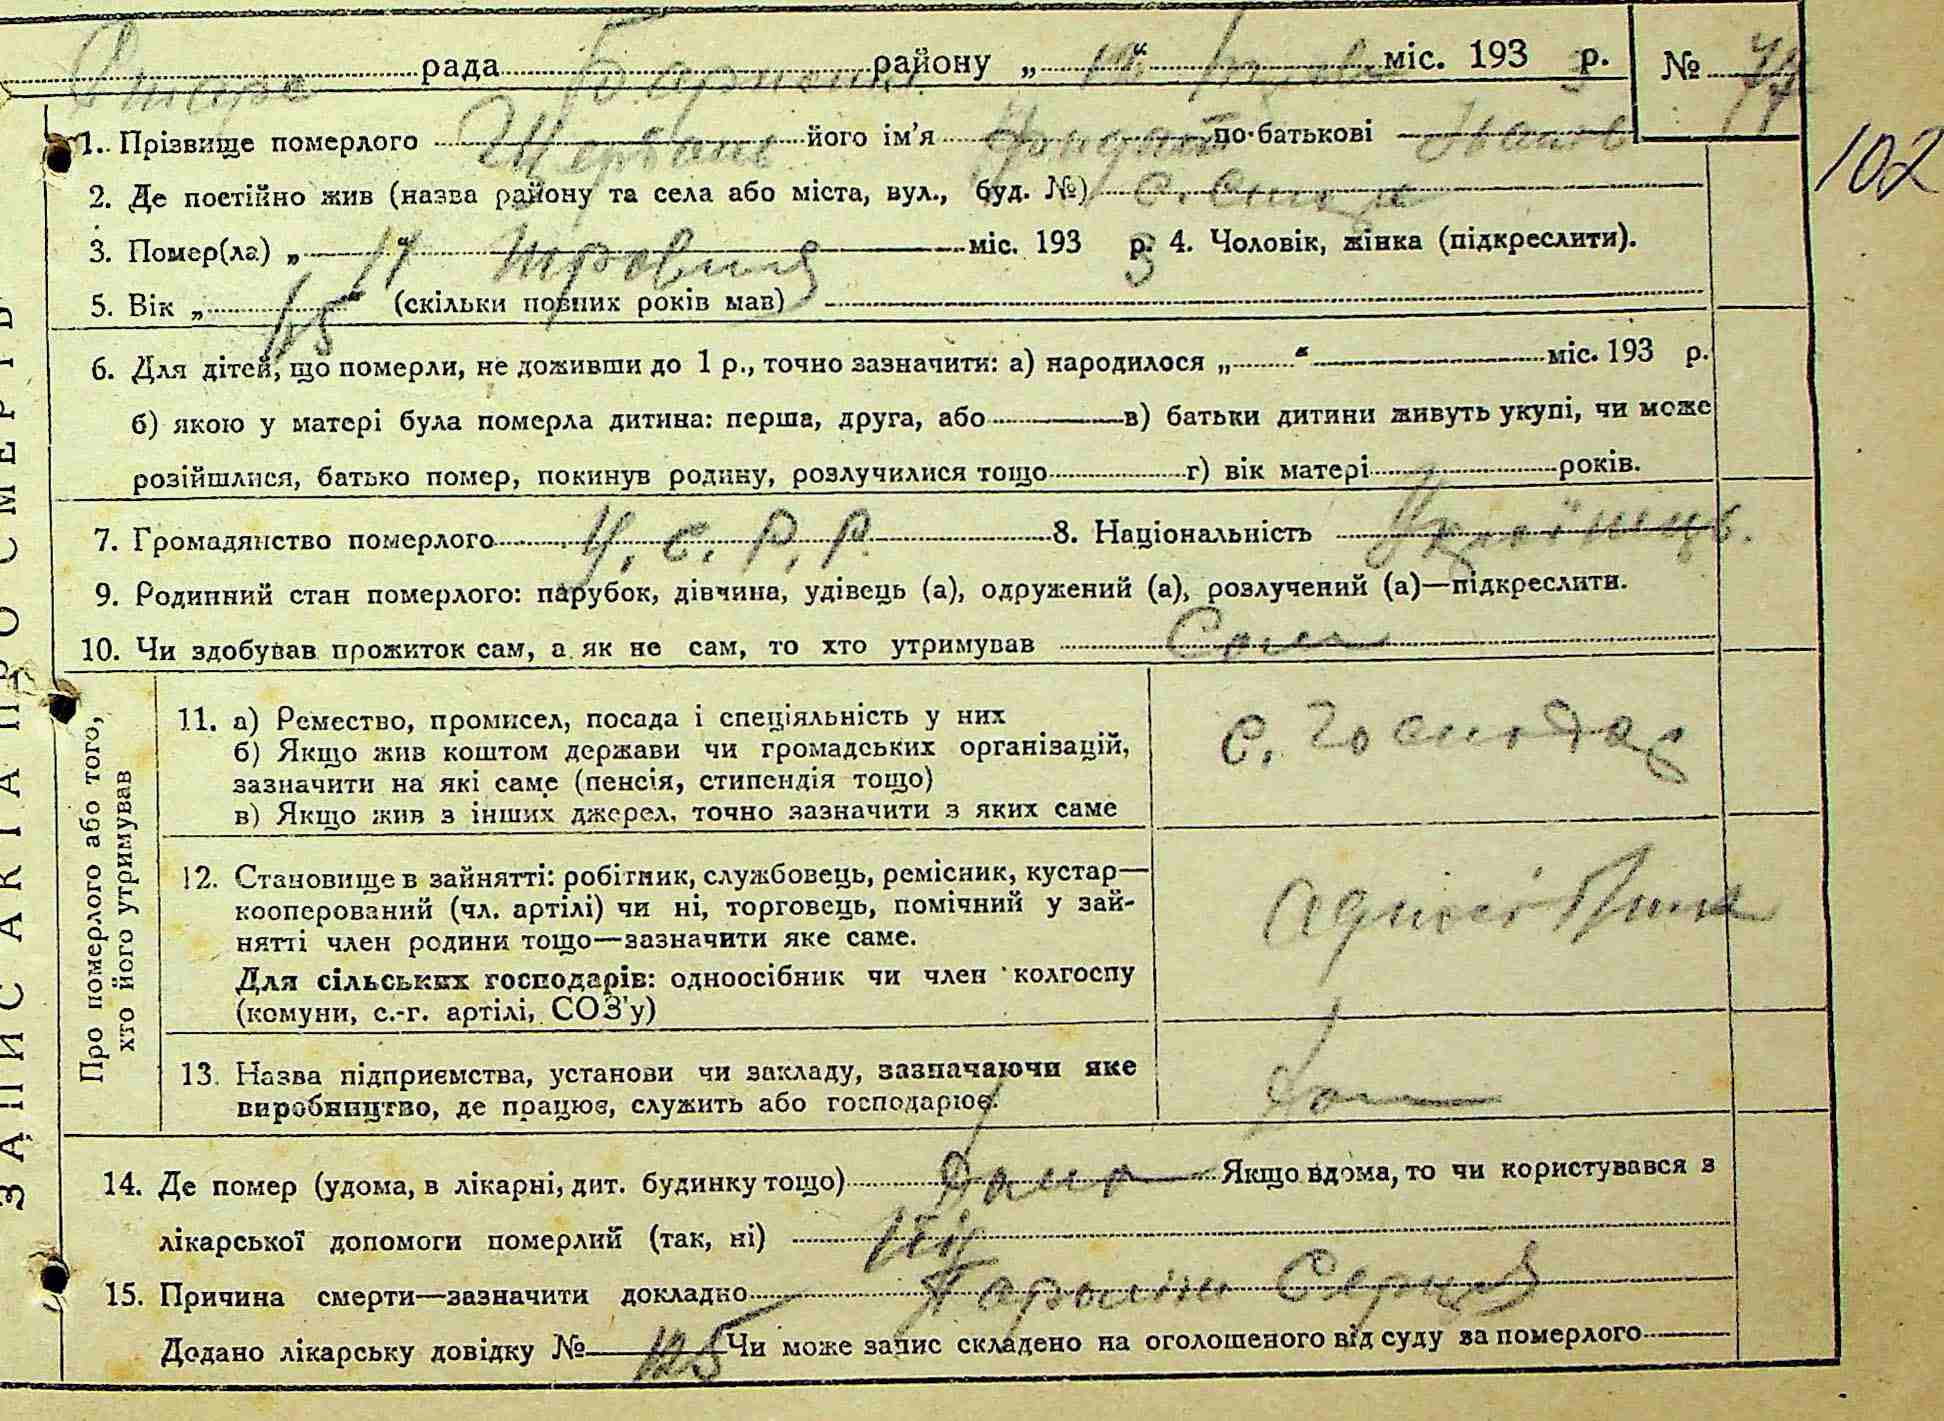 рада Барвенк. району „ 19 “ міс. 193 3 р. № 77
102
1. Прізвище померлого Щербань його ім'я по-батькові Іванов
2. Де постійно жив (назва району та села або міста, вул., буд. №) с.
3. Помер(ла) „ 17 “ травня міс. 193 3 р. 4. Чоловік, жінка (підкреслити).
5. Вік „ 45 “ (скільки повних років мав)
6. Для дітей, що померли, не доживши до 1 р., точно зазначити: а) народилося „ “ міс. 193 р.
б) якою у матері була померла дитина: перша, друга, або в) батьки дитини живуть укупі, чи може
розійшлися, батько помер, покинув родину, розлучилися тощо г) вік матері років.
7. Громадянство померлого У. С. Р. Р. 8. Національність Українець.
9. Родинний стан померлого: парубок, дівчина, удівець (а), одружений (а), розлучений (а)—підкреслити.
10. Чи здобував прожиток сам, а як не сам, то хто утримував Сам
ЗАПИС АКТА ПРО СМЕРТЬ
Про померлого або того,
хто його утримував
11. а) Ремество, промисел, посада і спеціяльність у них
б) Якщо жив коштом держави чи громадських організацій,
зазначити на які саме (пенсія, стипендія тощо)
в) Якщо жив з інших джерел, точно зазначити з яких саме
с. господар
12. Становище в зайнятті: робітник, службовець, ремісник, кустар—
кооперований (чл. артілі) чи ні, торговець, помічний у зай-
нятті член родини тощо—зазначити яке саме.
Для сільських господарів: одноосібник чи член колгоспу
(комуни, с.-г. артілі, СОЗ'у)
13. Назва підприємства, установи чи закладу, зазначаючи яке
виробництво, де працює, служить або господарює.
14. Де помер (удома, в лікарні, дит. будинку тощо) дома Якщо вдома, то чи користувався з
лікарської допомоги померлий (так, ні) ні
15. Причина смерти—зазначити докладно Параліч Серця
Додано лікарську довідку № 125 Чи може запис складено на оголошеного від суду за померлого